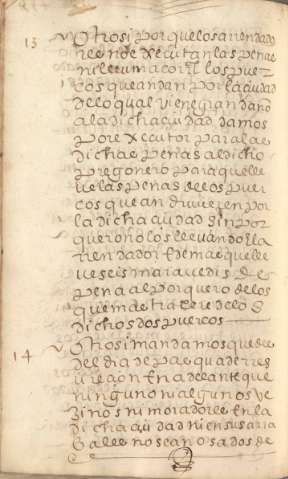 13 Otrosi por que los arrendado
res no executan las penas
ni lleuan a coto los puer
cos que andan por la ciudad
de lo qual viene gran daño
a la dicha ciudad damos
por executor para las
dichas penas al dicho
pregonero para que lle
ue las penas de los puer
cos que anduvieren por
la dicha ciudad sin por
querono los lleuando el a
rrendador e demas que lle
ue seis maravedis de
pena al porquero de los
que mas traxere de los
dichos dos puercos
14 Otrosi mandamos que des
del dia de pascua de rres
urreçion en adelante que
ninguno ni algunos ve
zinos ni moradores en la
dicha ciudad ni en sus arra
bales no sean osados de